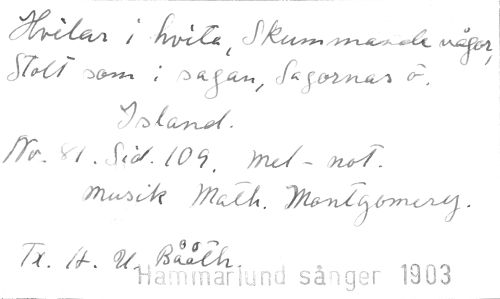 Hvilar i hvita, Skummande vågor,
Stolt som i sagan, Sagornas ö.
Island.
No. 81. Sid. 109. mel-not.
musik Math. Montgomery.
Tx. A. U. Bååth.
Hammarlund sånger 1903